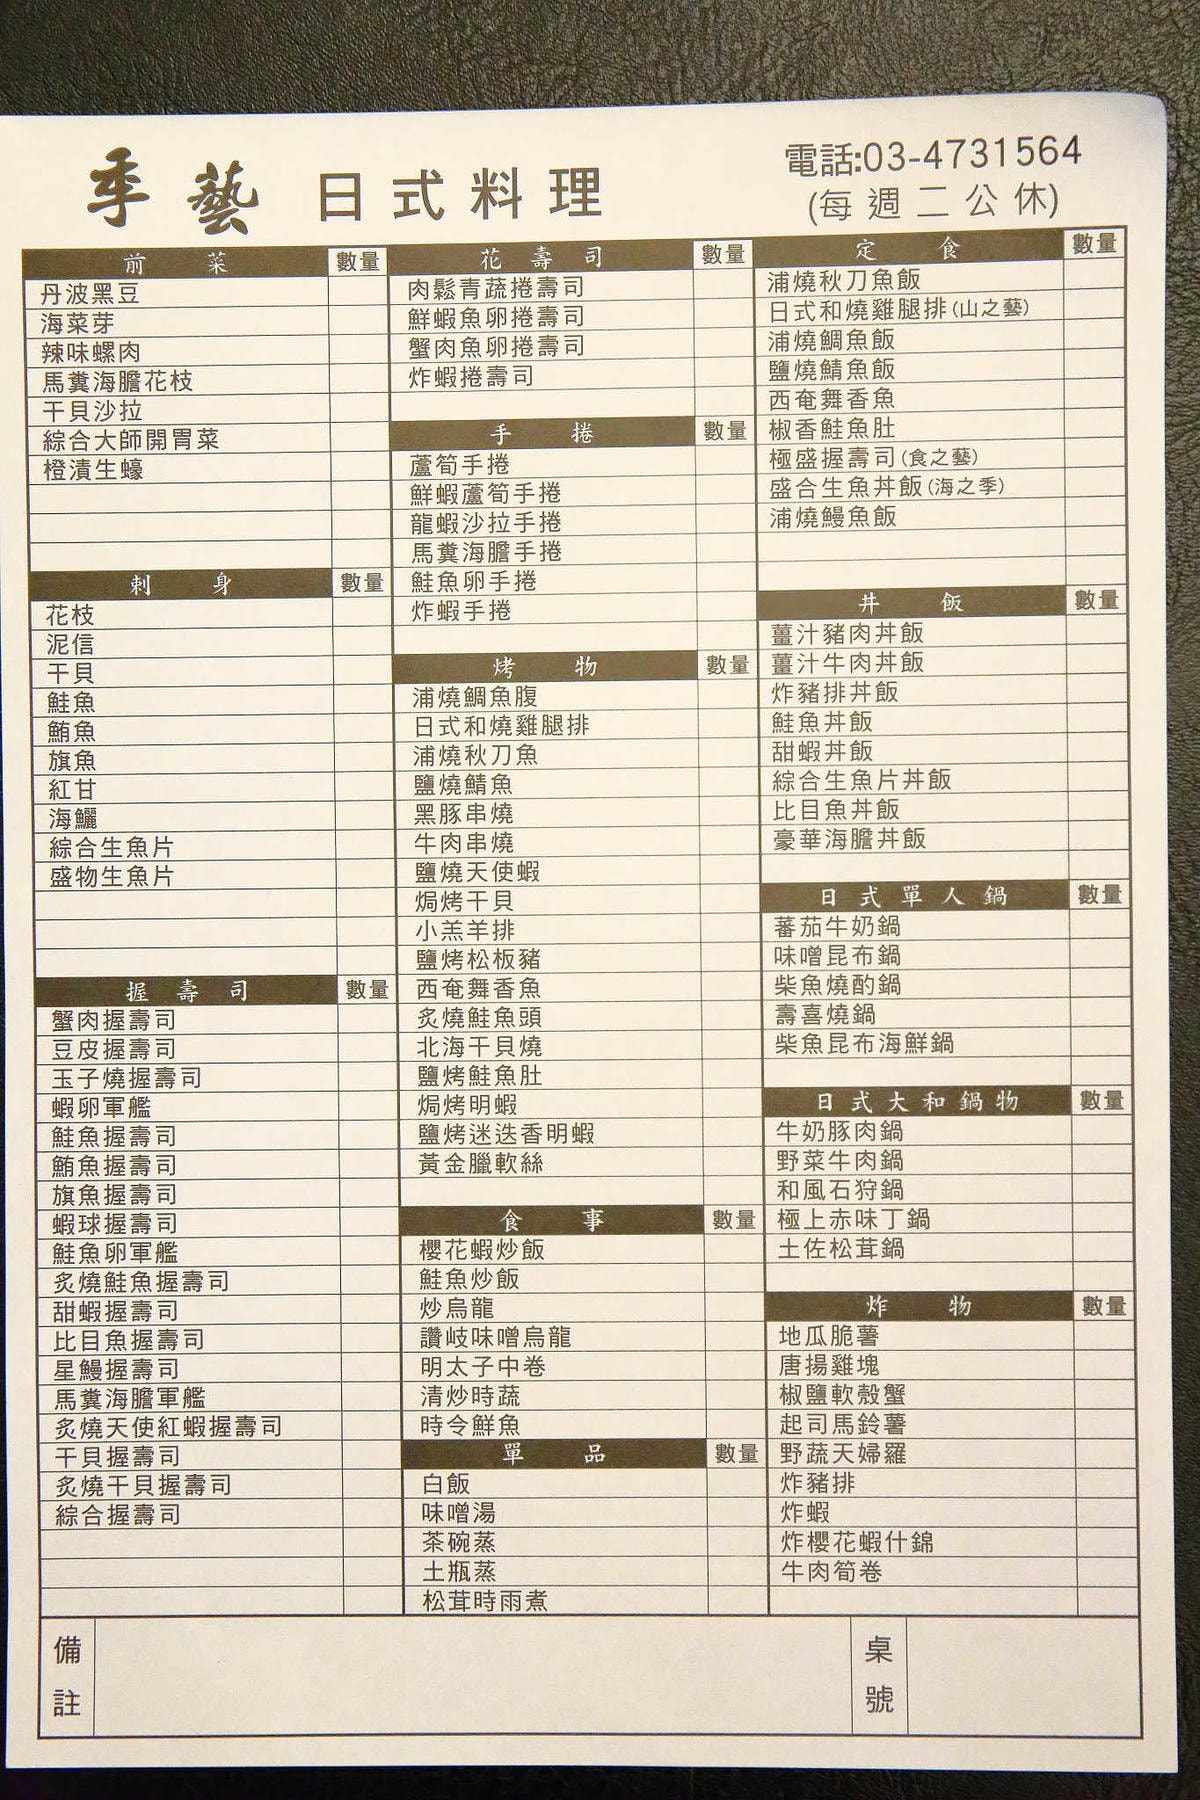 季藝 日式料理
電話:03-4731564
(每週二公休)
前菜 數量
丹波黑豆
海菜芽
辣味螺肉
馬糞海膽花枝
干貝沙拉
綜合大師開胃菜
橙漬生蠔
刺身 數量
花枝
泥信
干貝
鮭魚
鮪魚
旗魚
紅甘
海鱺
綜合生魚片
盛物生魚片
握壽司 數量
蟹肉握壽司
豆皮握壽司
玉子燒握壽司
蝦卵軍艦
鮭魚握壽司
鮪魚握壽司
旗魚握壽司
蝦球握壽司
鮭魚卵軍艦
炙燒鮭魚握壽司
甜蝦握壽司
比目魚握壽司
星鰻握壽司
馬糞海膽軍艦
炙燒天使紅蝦握壽司
干貝握壽司
炙燒干貝握壽司
綜合握壽司
花壽司 數量
肉鬆青蔬捲壽司
鮮蝦魚卵捲壽司
蟹肉魚卵捲壽司
炸蝦捲壽司
手捲 數量
蘆筍手捲
鮮蝦蘆筍手捲
龍蝦沙拉手捲
馬糞海膽手捲
鮭魚卵手捲
炸蝦手捲
烤物 數量
浦燒鯛魚腹
日式和燒雞腿排
浦燒秋刀魚
鹽燒鯖魚
黑豚串燒
牛肉串燒
鹽燒天使蝦
焗烤干貝
小羔羊排
鹽烤松板豬
西奄舞香魚
炙燒鮭魚頭
北海干貝燒
鹽烤鮭魚肚
焗烤明蝦
鹽烤迷迭香明蝦
黃金臘軟絲
食事 數量
櫻花蝦炒飯
鮭魚炒飯
炒烏龍
讚岐味噌烏龍
明太子中卷
清炒時蔬
時令鮮魚
單品 數量
白飯
味噌湯
茶碗蒸
土瓶蒸
松茸時雨煮
定食 數量
浦燒秋刀魚飯
日式和燒雞腿排(山之藝)
浦燒鯛魚飯
鹽燒鯖魚飯
西奄舞香魚
椒香鮭魚肚
極盛握壽司(食之藝)
盛合生魚丼飯(海之季)
浦燒鰻魚飯
丼飯 數量
薑汁豬肉丼飯
薑汁牛肉丼飯
炸豬排丼飯
鮭魚丼飯
甜蝦丼飯
綜合生魚片丼飯
比目魚丼飯
豪華海膽丼飯
日式單人鍋 數量
蕃茄牛奶鍋
味噌昆布鍋
柴魚燒酌鍋
壽喜燒鍋
柴魚昆布海鮮鍋
日式大和鍋物 數量
牛奶豚肉鍋
野菜牛肉鍋
和風石狩鍋
極上赤味丁鍋
土佐松茸鍋
炸物 數量
地瓜脆薯
唐揚雞塊
椒鹽軟殼蟹
起司馬鈴薯
野蔬天婦羅
炸豬排
炸蝦
炸櫻花蝦什錦
牛肉筍卷
備註
桌號